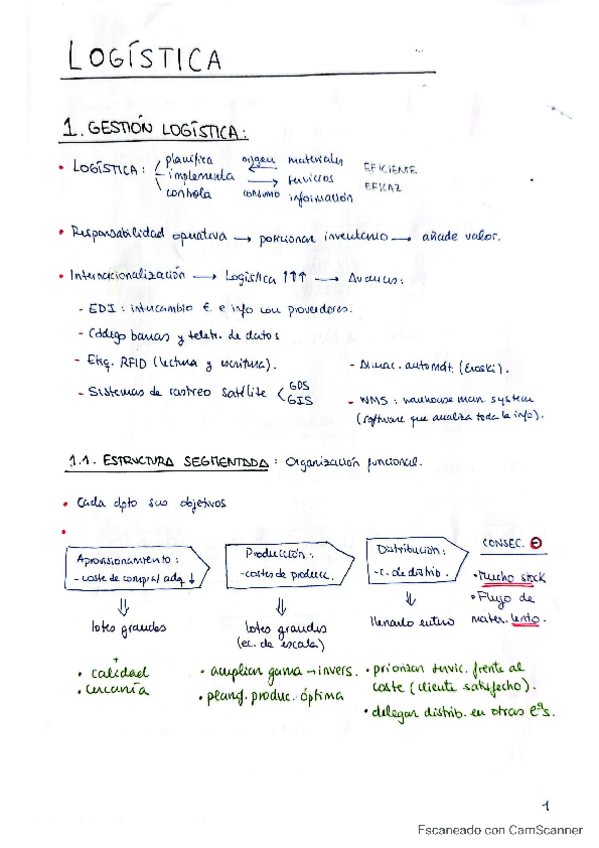 LOGÍSTICA
1. GESTIÓN LOGÍSTICA:
• LOGÍSTICA: planifica origen materiales EFICIENTE
- implementa ← → servicios EFICAZ
controla consumo información
• Responsabilidad operativa → posicionar inventario → añade valor.
• Internacionalización → Logística ↑↑↑ → Avances:
- EDI: intercambio € e info con proveedores.
- Código barras y teletr. de datos
- Etiq. RFID (lectura y escritura).
- Almac. automát. (Eroski).
- Sistemas de rastreo satélite < GPS
GIS
- WMS: warehouse man. system
(software que analiza toda la info).
1.1. ESTRUCTURA SEGMENTADA: Organización funcional.
• Cada dpto sus objetivos
•
Aprovisionamiento:
- coste de compra/adq ↓
⇓
lotes grandes
+
• calidad
• cercanía
Producción:
- costes de producc.
⇓
lotes grandes
(ec. de escala)
• ampliar gama → invers.
• planif. produc. óptima
Distribución:
- c. de distrib.
⇓
llenarlo entero
• priorizar servic. frente al
coste (cliente satisfecho).
• delegar distrib. en otras eªs.
CONSEC. ⊖
• Mucho stock
• Flujo de
mater. lento.
1
Escaneado con CamScanner